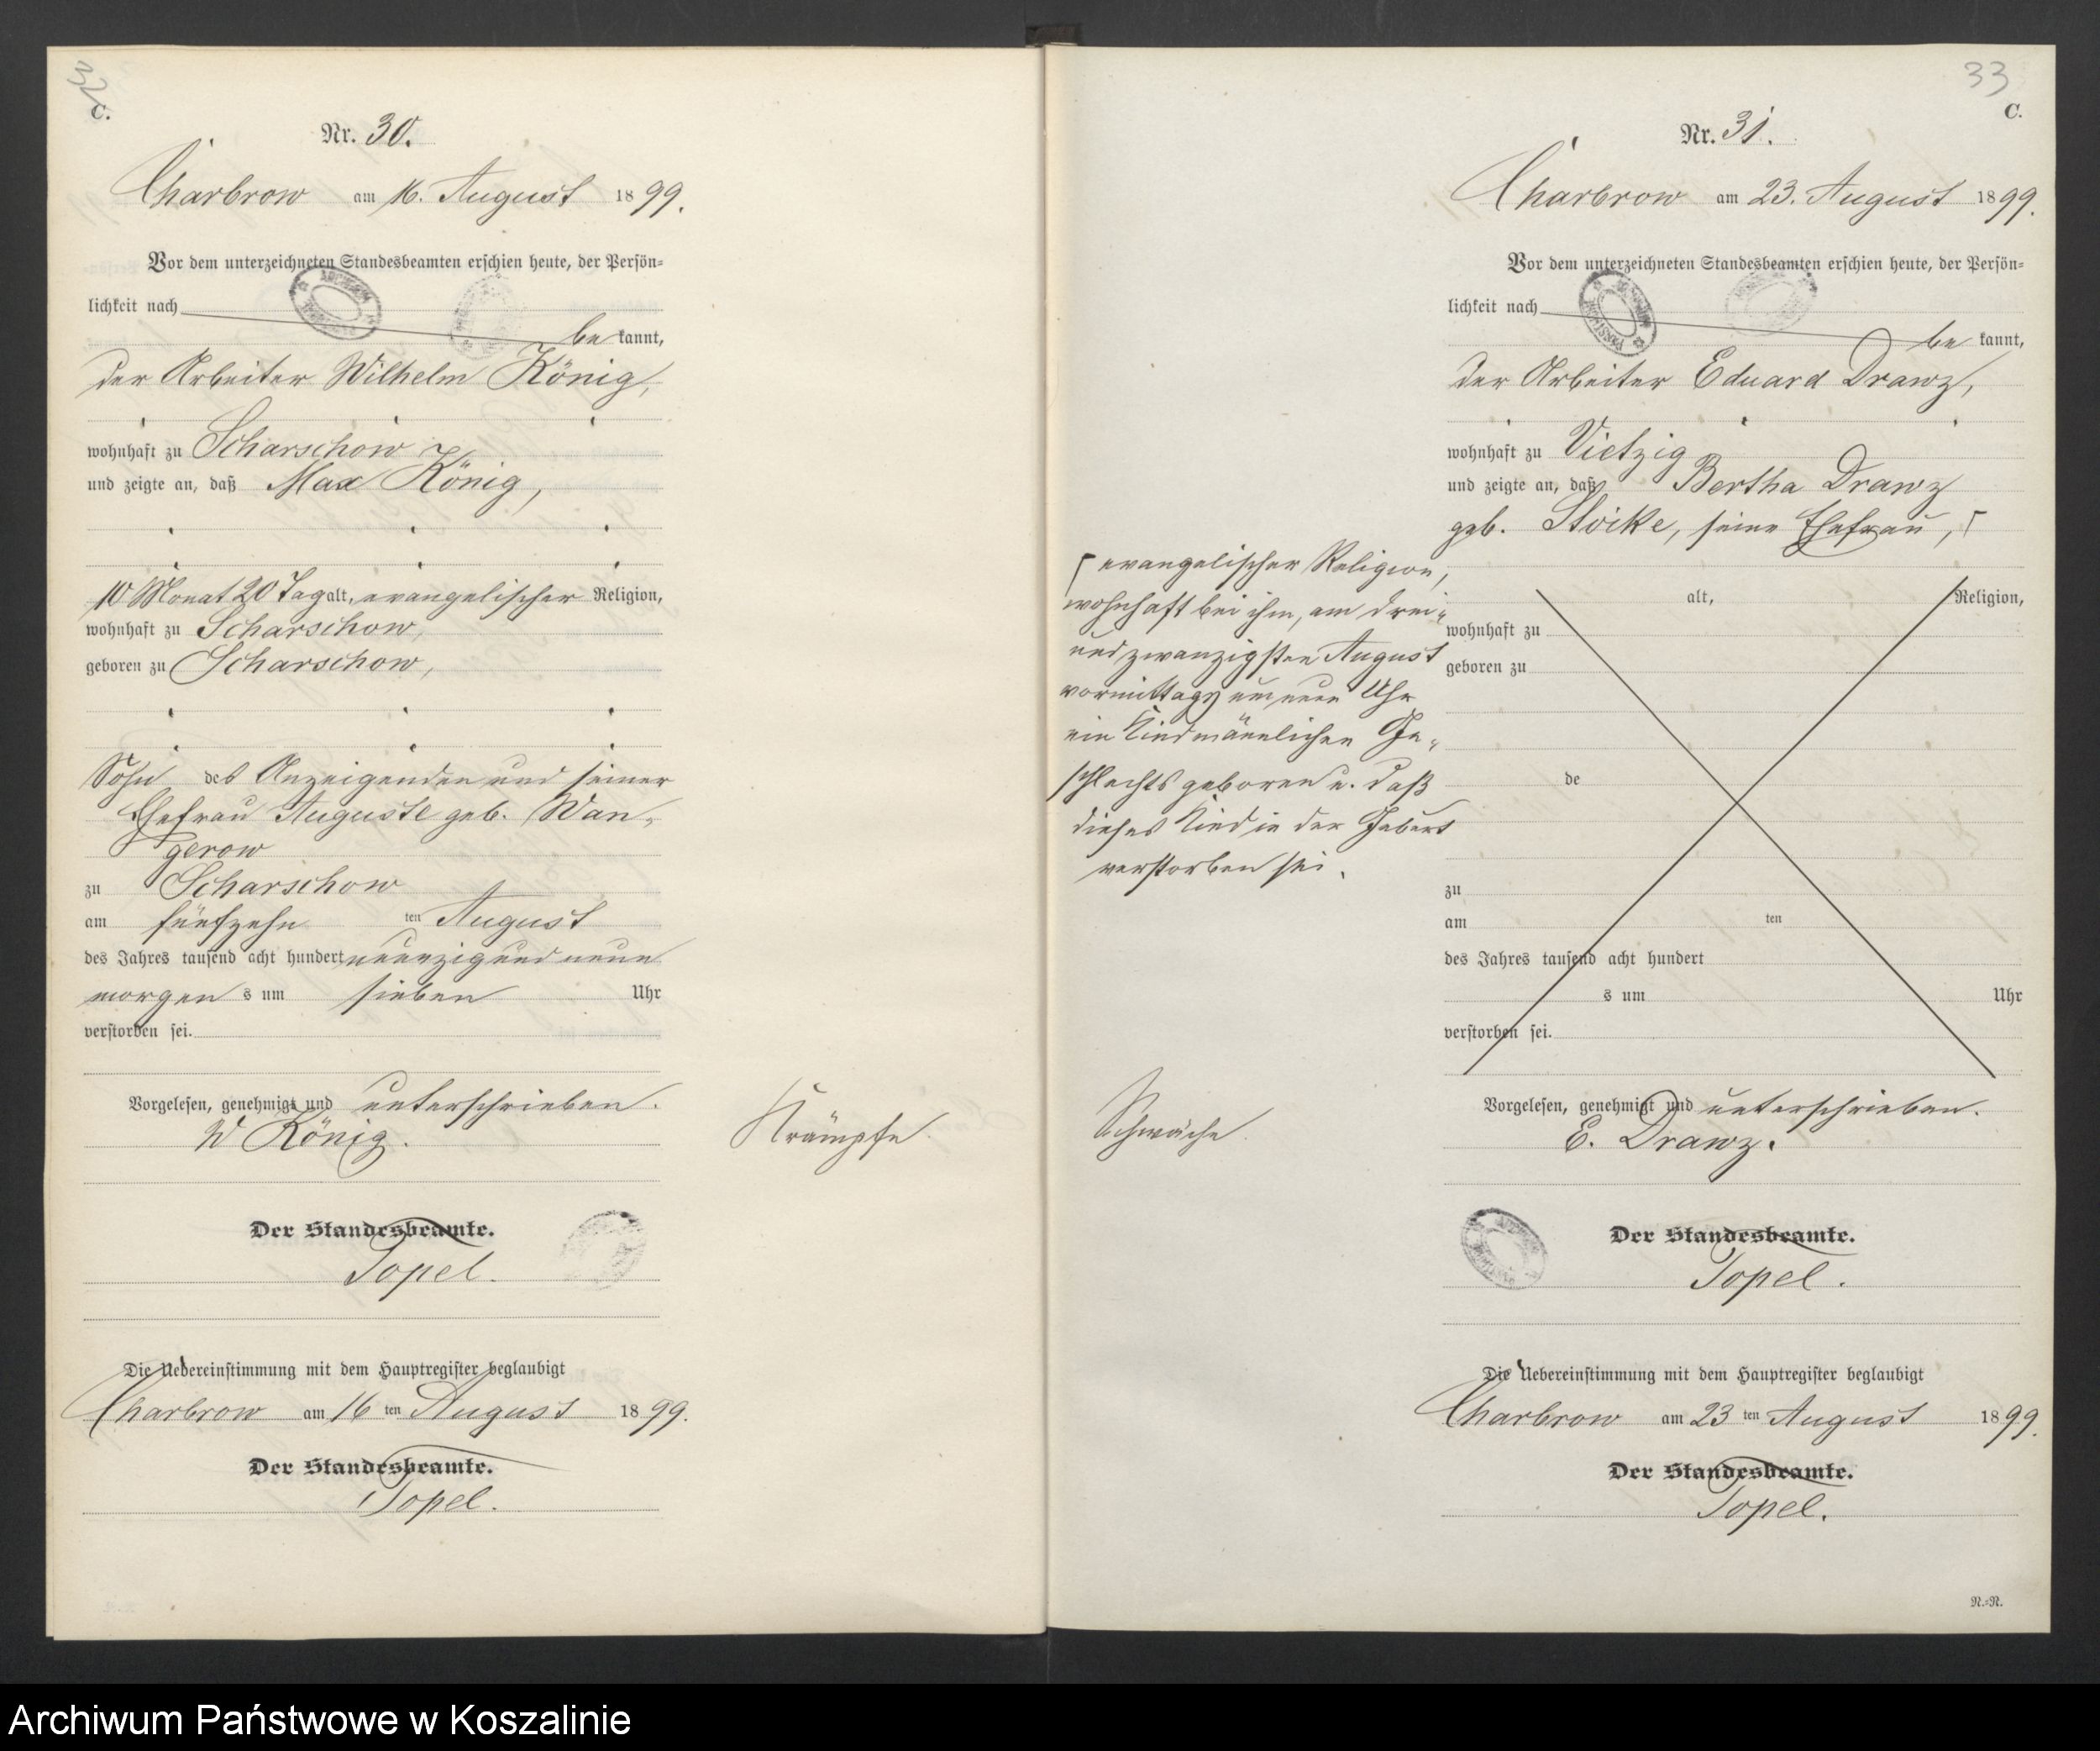 32
C.
Nr. 30.
Charbrow am 16. August 1899.
Vor dem unterzeichneten Standesbeamten erschien heute, der Persön=
lichkeit nach
be kannt,
der Arbeiter Wilhelm König,
wohnhaft zu Scharschow
und zeigte an, daß Max König,
10 Monat 20 Tag alt, evangelischer Religion,
wohnhaft zu Scharschow,
geboren zu Scharschow,
Sohn des Anzeigenden und seiner
Ehefrau Auguste geb. Wan-
gerow
zu Scharschow
am fünfzehn ten August
des Jahres tausend acht hundert neunzig und neun
morgen s um sieben Uhr
verstorben sei.
Vorgelesen, genehmigt und unterschrieben.
W König.
Krämpfe.
Der Standesbeamte.
Topel.
Die Uebereinstimmung mit dem Hauptregister beglaubigt
Charbrow am 16 ten August 1899.
Der Standesbeamte.
Topel.
33
C.
Nr. 31.
Charbrow am 23. August 1899.
Vor dem unterzeichneten Standesbeamten erschien heute, der Persön=
lichkeit nach
be kannt,
der Arbeiter Eduard Drawz,
wohnhaft zu Vietzig
und zeigte an, daß Bertha Drawz
geb. Stoike, seine Ehefrau, Γ
Γ evangelischer Religion,
wohnhaft bei ihm, am drei-
und zwanzigsten August
vormittags um neun Uhr
ein Kind männlichen Ge-
schlechts geboren u. daß
dieses Kind in der Geburt
verstorben sei.
alt, Religion,
wohnhaft zu
geboren zu
de
zu
am ten
des Jahres tausend acht hundert
s um Uhr
verstorben sei.
Vorgelesen, genehmigt und unterschrieben.
E. Drawz.
Schwäche.
Der Standesbeamte.
Topel.
Die Uebereinstimmung mit dem Hauptregister beglaubigt
Charbrow am 23 ten August 1899.
Der Standesbeamte.
Topel.
N.=N.
Archiwum Państwowe w Koszalinie